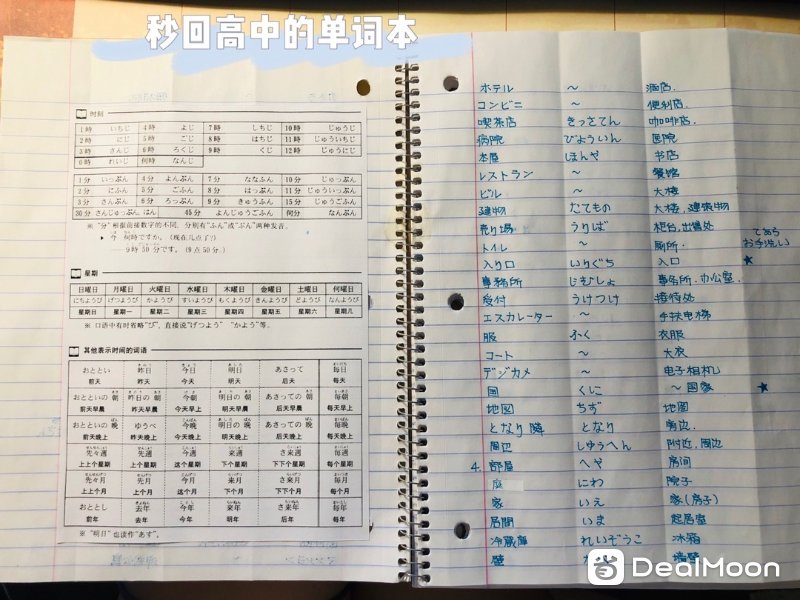 秒回高中的单词本
时间
1時 いちじ 4時 よじ 7時 しちじ 10時 じゅうじ
2時 にじ 5時 ごじ 8時 はちじ 11時 じゅういちじ
3時 さんじ 6時 ろくじ 9時 くじ 12時 じゅうにじ
0時 れいじ 何時 なんじ
1分 いっぷん 4分 よんぷん 7分 ななふん 10分 じゅっぷん
2分 にふん 5分 ごふん 8分 はっぷん 11分 じゅういっぷん
3分 さんぷん 6分 ろっぷん 9分 きゅうふん 15分 じゅうごふん
30分 さんじゅっぷん はん 45分 よんじゅうごふん 何分 なんぷん
※ "分"根据前接数字的不同，分别有"ふん"或"ぷん"两种发音。
▶ 今 何時ですか。(现在几点了?)
——9時50分です。(9点50分。)
星期
日曜日 月曜日 火曜日 水曜日 木曜日 金曜日 土曜日 何曜日
にちようび げつようび かようび すいようび もくようび きんようび どようび なんようび
星期日 星期一 星期二 星期三 星期四 星期五 星期六 星期几
※ 口语中有时省略"び"，直接说"げつよう" "かよう"等。
其他表示时间的词语
おととい 昨日 今日 明日 あさって 毎日
前天 昨天 今天 明天 后天 每天
おとといの朝 昨日の朝 今朝 明日の朝 あさっての朝 毎朝
前天早晨 昨天早晨 今天早上 明天早晨 后天早晨 每天早上
おとといの晩 ゆうべ 今晩 明日の晩 あさっての晩 毎晩
前天晚上 昨天晚上 今天晚上 明天晚上 后天晚上 每天晚上
先々週 先週 今週 来週 さ来週 毎週
上上个星期 上个星期 这个星期 下个星期 下下个星期 每个星期
先々月 先月 今月 来月 さ来月 毎月
上上个月 上个月 这个月 下个月 下下个月 每个月
おととし 去年 今年 来年 さ来年 毎年
前年 去年 今年 明年 后年 每年
※ "明日"也读作"あす"。
ホテル ～ 酒店.
コンビニ ～ 便利店.
喫茶店 きっさてん 咖啡店.
病院 びょういん 医院
本屋 ほんや 书店
レストラン ～ 餐馆
ビル ～ 大楼
建物 たてもの 大楼,建筑物
売り場 うりば 柜台,出售处
トイレ ～ 厕所. てあら お手洗い
入り口 いりぐち 入口 ★
事務所 じむしょ 事务所.办公室.
受付 うけつけ 接待处
エスカレーター ～ 手扶电梯
服 ふく 衣服
コート ～ 大衣
デジカメ ～ 电子相机
国 くに ～国家 ★
地図 ちず 地图
となり 隣 となり 旁边.
周辺 しゅうへん 附近.周边
4. 部屋 へや 房间
庭 にわ 院子
家 いえ 家(房子)
居間 いま 起居室
冷蔵庫 れいぞうこ 冰箱
壁 墙壁
DealMoon